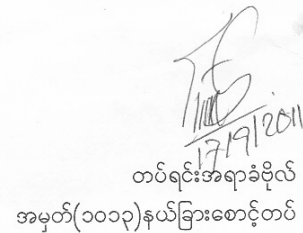 17/9/2011
တပ်ရင်းအရာခံဗိုလ်
အမှတ်(၁၀၁၃)နယ်ခြားစောင့်တပ်